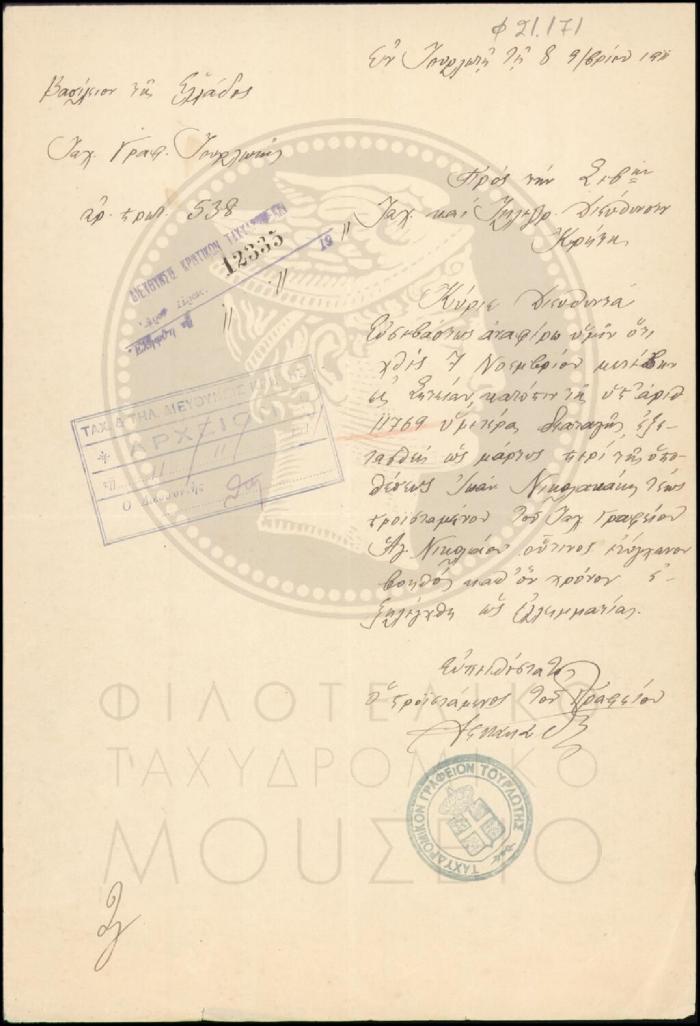 Φ 21/171
Ἐν Τουρλωτῇ τῇ 8 9/βρίου 1911
Βασίλειον τῆς Ἑλλάδος
Ταχ. Γραφ. Τουρλωτῆς
Πρὸς τὴν Σεβην
ἀρ. πρωτ. 538
Ταχ. καὶ Τηλεγρ. Διεύθυνσιν
Κρήτης
ΔΙΕΥΘΥΝΣΙΣ ΚΡΗΤΙΚΩΝ ΤΑΧΥΔΡΟΜΕΙΩΝ
12335
19
Κύριε Διευθυντά
Εὐσεβάστως ἀναφέρω ὑμῖν ὅτι
χθὲς 7 Νοεμβρίου μετέβην
εἰς Σητείαν, κατόπιν τῆς ὑπ' ἀριθ
11769 ὑμετέρας διαταγῆς, ἐξε-
τασθεὶς ὡς μάρτυς περὶ τῆς ὑπο-
θέσεως Ἰωάν Νικολακάκη τέως
προϊσταμένου τοῦ Ταχ Γραφείου
Ἁγ. Νικολάου οὗτινος ἐτύγχανον
βοηθὸς καθ' ὃν χρόνον ἐ-
ξηλέγχθη ὡς ἐλλειμματίας.
ΤΑΧ. & ΤΗΛ. ΔΙΕΥΘΥΝΣΙΣ
ΑΡΧΕΙΟ
11/11
Εὐπειθέστατος
Ὁ προϊστάμενος τοῦ Γραφείου
ΤΑΧΥΔΡΟΜΙΚΟΝ ΓΡΑΦΕΙΟΝ ΤΟΥΡΛΩΤΗΣ
ΦΙΛΟΤΕΛΙΚΟ
ΤΑΧΥΔΡΟΜΙΚΟ
ΜΟΥΣΕΙΟ